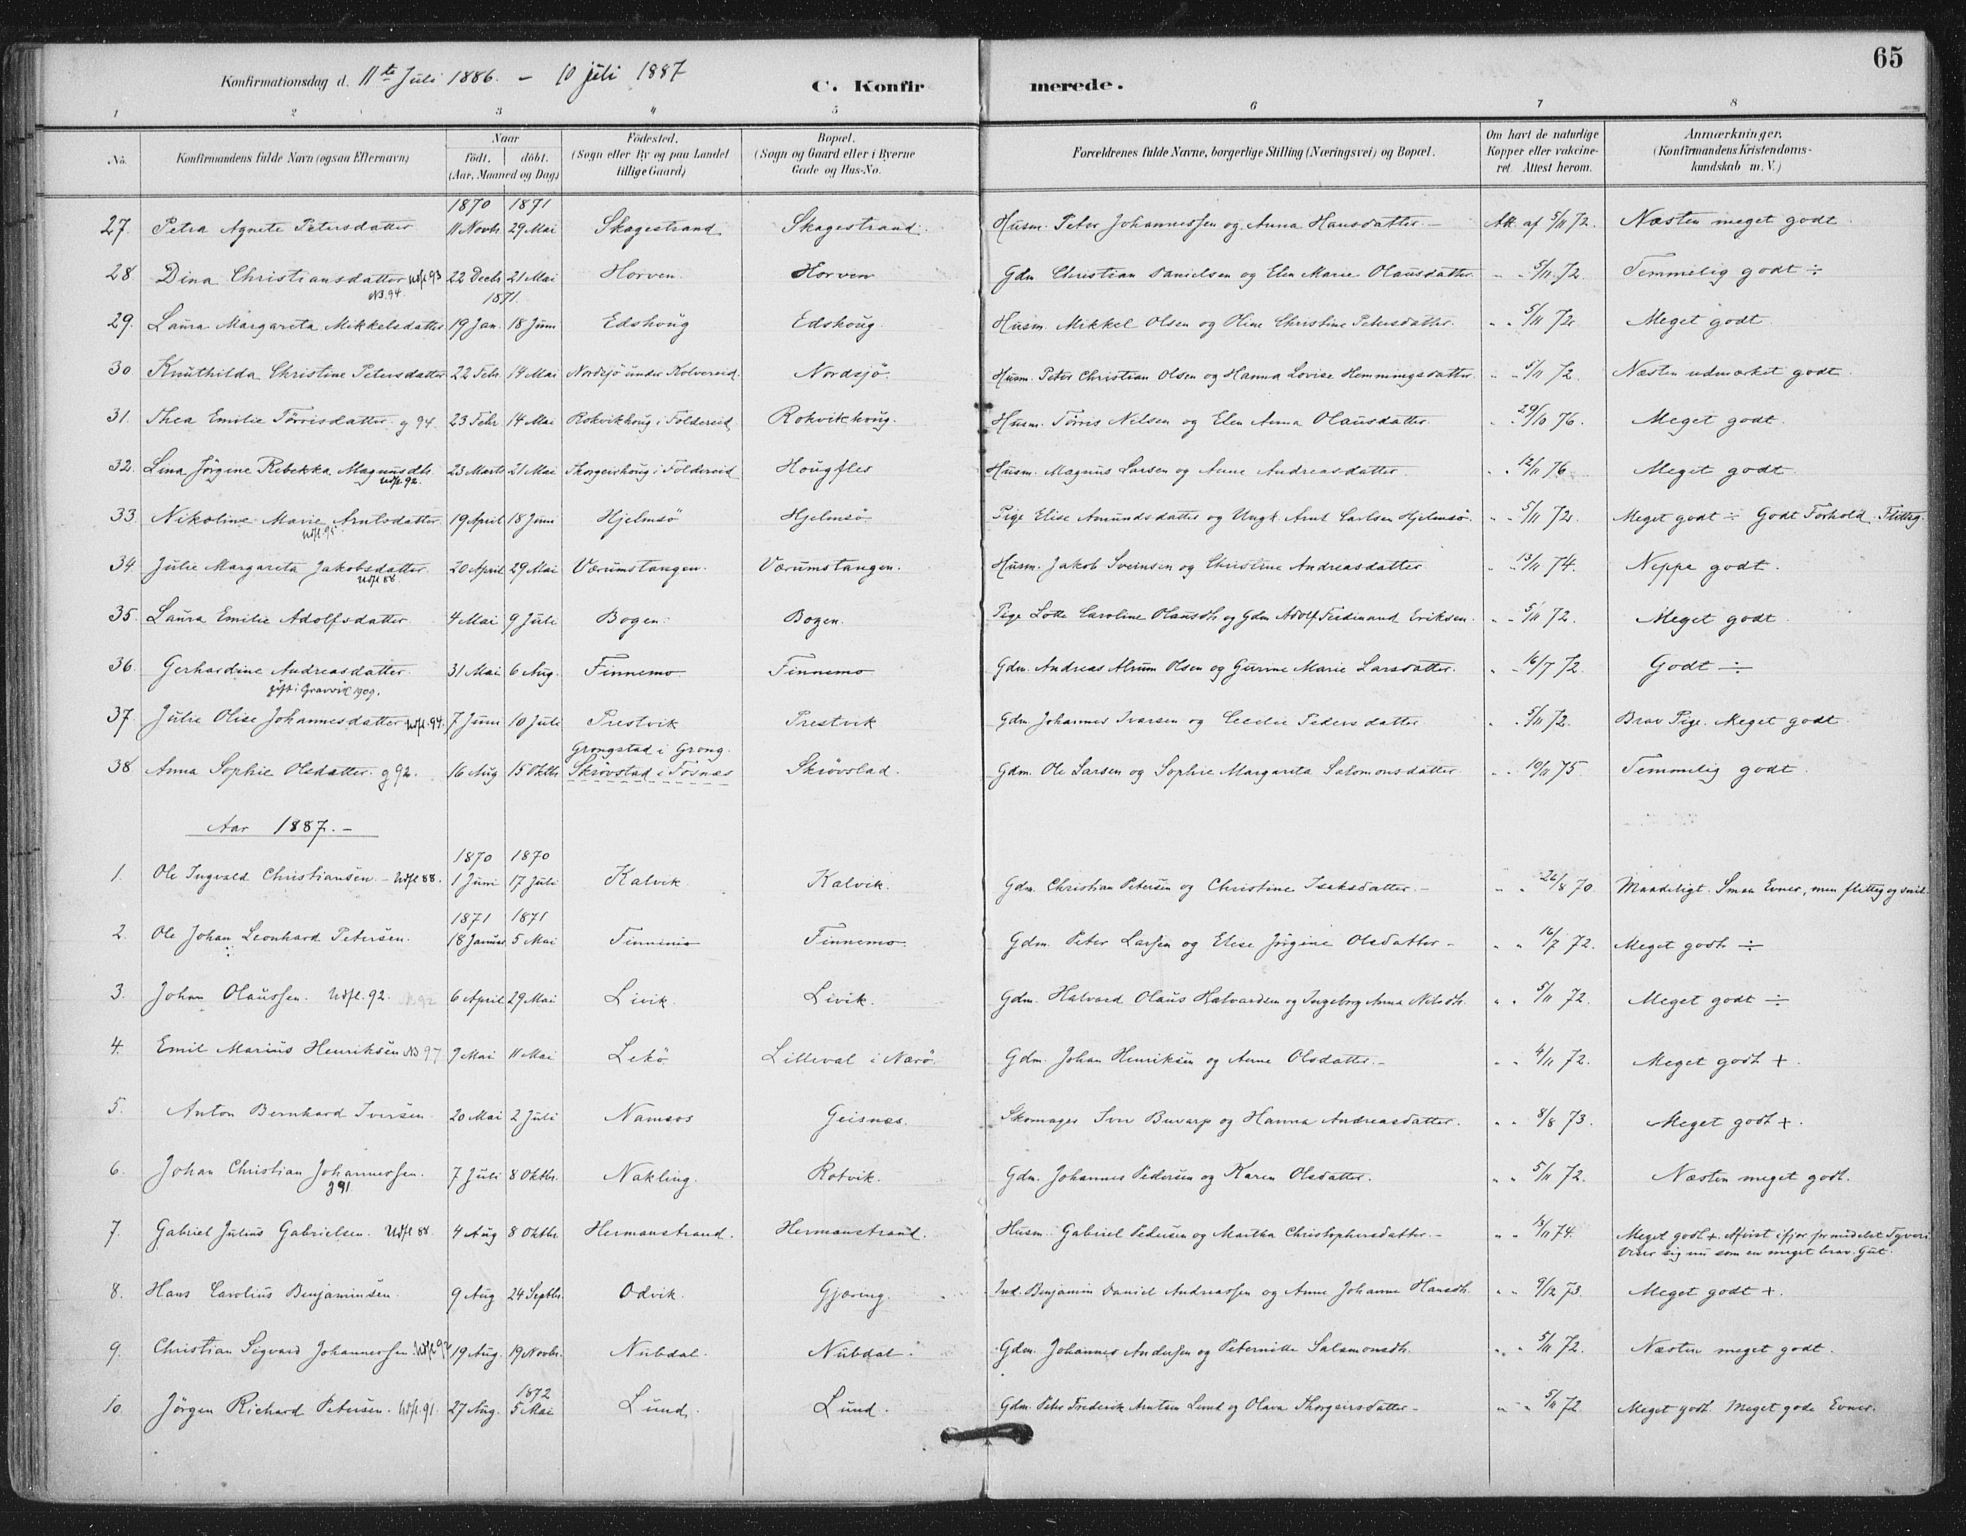 65
Konfirmationsdag d. 11te Juli 1886. – 10 juli 1887
C. Konfirmerede.
1 2 3 4 5 6 7 8
No. Konfirmandens fulde Navn (ogsaa Efternavn) Naar födt. döbt. (Aar, Maaned og Dag) Födested. (Sogn eller By og paa Landet tillige Gaard) Bopæl. (Sogn og Gaard eller i Byerne Gade og Hus-No. Forældrenes fulde Navne, borgerlige Stilling (Næringsvei) og Bopæl. Om havt de naturlige Kopper eller vakcineret. Attest herom. Anmærkninger. (Konfirmandens Kristendomskundskab m. V.)
1870 1871
27. Petra Agnete Petersdatter 11 Novbr. 29 Mai Skagestrand Skagestrand. Husm. Peter Johannessen og Anna Hansdatter. – Att. af 5/11 72. Næsten meget godt.
28 Dina Christiansdatter Udfl 93 22 Decb 21 Mai Horven Horven Gdm Christian Danielsen og Elen Marie Olausdatter. " " 5/11 72. Temmelig godt ÷
N3.94. 1871.
29. Laura Margareta Mikkelsdatter 19 Jan. 18 Juni Edshoug Edshoug Husm. Mikkel Olsen og Oline Christine Petersdatter. " " 5/11 72 Meget godt.
30 Knuthilda Christine Petersdatter 22 Febr. 14 Mai Nordsjö under Kolvereid. Nordsjö. Husm. Peter Christian Olsen og Hanna Lovise Hemmingsdatter. " " 5/11 72. Næsten udmærket godt.
31. Thea Emilie Törrisdatter. g 94. 23 Febr 14 Mai Rokvikhoug i Foldereid Rokvikhoug. Husm. Törris Nilsen og Elen Anna Olausdatter. " 29/10 76. Meget godt.
32. Lina Jörgine Rebekka Magnusdtr. 23 Marts 21 Mai Thorgeirhoug i Foldereid Hougfles Husm. Magnus Larsen og Anne Andreasdatter. " 12/11 76. Meget godt.
Udfl. 92.
33. Nikoline Marie Arntsdatter 19 April 18 Juni Hjelmsö Hjelmsö. Pige Elise Amundsdatter og Ungk Arnt Carlsen Hjelmsö. " " 5/11 72. Meget godt ÷ Godt Forhold. Flittig.
Udfl. 95.
34. Julie Margareta Jakobsdatter. 20 April 29 Mai Værumstangen. Værumstangen. Husm. Jakob Sveinsen og Christine Andreasdatter " " 13/11 74. Neppe godt.
Udfl 88
35. Laura Emilie Adolfsdatter 4 Mai 9 Juli Bogen. Bogen. Pige Lotte Caroline Olausdtr og Gdm Adolf Ferdinand Eriksen. " " 5/11 72. Meget godt.
36. Gerhardine Andreasdatter. 31 Mai 6 Aug. Finnemo Finnemo Gdm. Andreas Olsen og Gurine Marie Larsdatter. " " 16/7 72. Godt ÷
gift i Gravvik 1909.
37. Julie Olise Johannesdatter Udfl. 94. 7 Juni 10 Juli Prestvik Prestvik Gdm. Johannes Ivarsen og Cecilie Pedersdatter " 5/11 72. Brav Pige. Meget godt.
38 Anna Sophie Olsdatter. g 92. 16 Aug 15 Oktbr. Grongstad i Grong. Skrövstad i Fosnæs Skrövstad. Gdm. Ole Larsen og Sophie Margareta Salomonsdatter. " " 10/11 75. Temmelig godt.
Aar 1887. –
1870 1870
1. Ole Ingvald Christiansen – Udfl 88. 1 Juni 17 Juli Kalvik Kalvik. Gdm. Christian Petersen og Christine Isaksdatter. – " " 26/8 70. Maadeligt. Smaa Evner, men flittig og snil.
1871 1871
2. Ole Johan Leonhard Petersen. 18 Januar 5 Mai Finnemo Finnemo. Gdm. Peter Larsen og Elise Jörgine Olsdatter – " " 16/7 72. Meget godt. ÷
3. Johan Olaussen. Udfl. 92. 6 April 29 Mai Livik. Livik. Gdm. Halvard Olaus Halvardsen og Ingeborg Anna Nilsdtr. " " 5/11 72. Meget godt ÷
4. Emil Marius Henriksen N3 97 9 Mai 11 Mai Lekö Lilleval i Nærö. Gdm. Johan Henriksen og Anne Olsdatter. – " " 4/11 72. Meget godt +.
5. Anton Bernhard Iversen. 20 Mai 2 Juli Namsos Geisnes. Skomager Iver Buvarp og Hanna Andreasdatter. " " 8/8 73. Meget godt +.
6. Johan Christian Johannessen. 7 Juli 8 Oktbr. Nakling. Rotvik. Gdm. Johannes Pedersen og Karen Olsdatter. " " 5/11 72. Næsten meget godt.
g 91.
7. Gabriel Julius Gabrielsen. Udfl 88. 4 Aug 8 Oktbr Hermanstrand. Hermanstrand. Husm. Gabriel Pedersen og Martha Christophersdatter. – " " 13/11 74. Meget godt +. Afvist ifjor for Tyveri. Viser sig nu som en meget brav Gut.
8. Hans Carolius Benjaminsen. 9 Aug 24 Septbr. Odvik. Gjæring. Ind. Benjamin Daniel Andreassen og Anne Johanne Hansdtr. " " 9/12 73. Meget godt +.
9. Christian Sigvard Johannessen. Udfl 92 19 Aug. 19 Novbr. Nubdal. Nubdal. Gdm. Johannes Andersen og Peternille Salomonsdtr. " " 5/11 72. Næsten meget godt.
1872
10. Jörgen Richard Petersen. Udfl. 91. 27 Aug. 5 Mai Lund. Lund. Gdm. Peter Frederik Arntsen Lund og Olava Thorgeirsdatter – " " 5/11 72. Meget godt. Meget gode Evner.